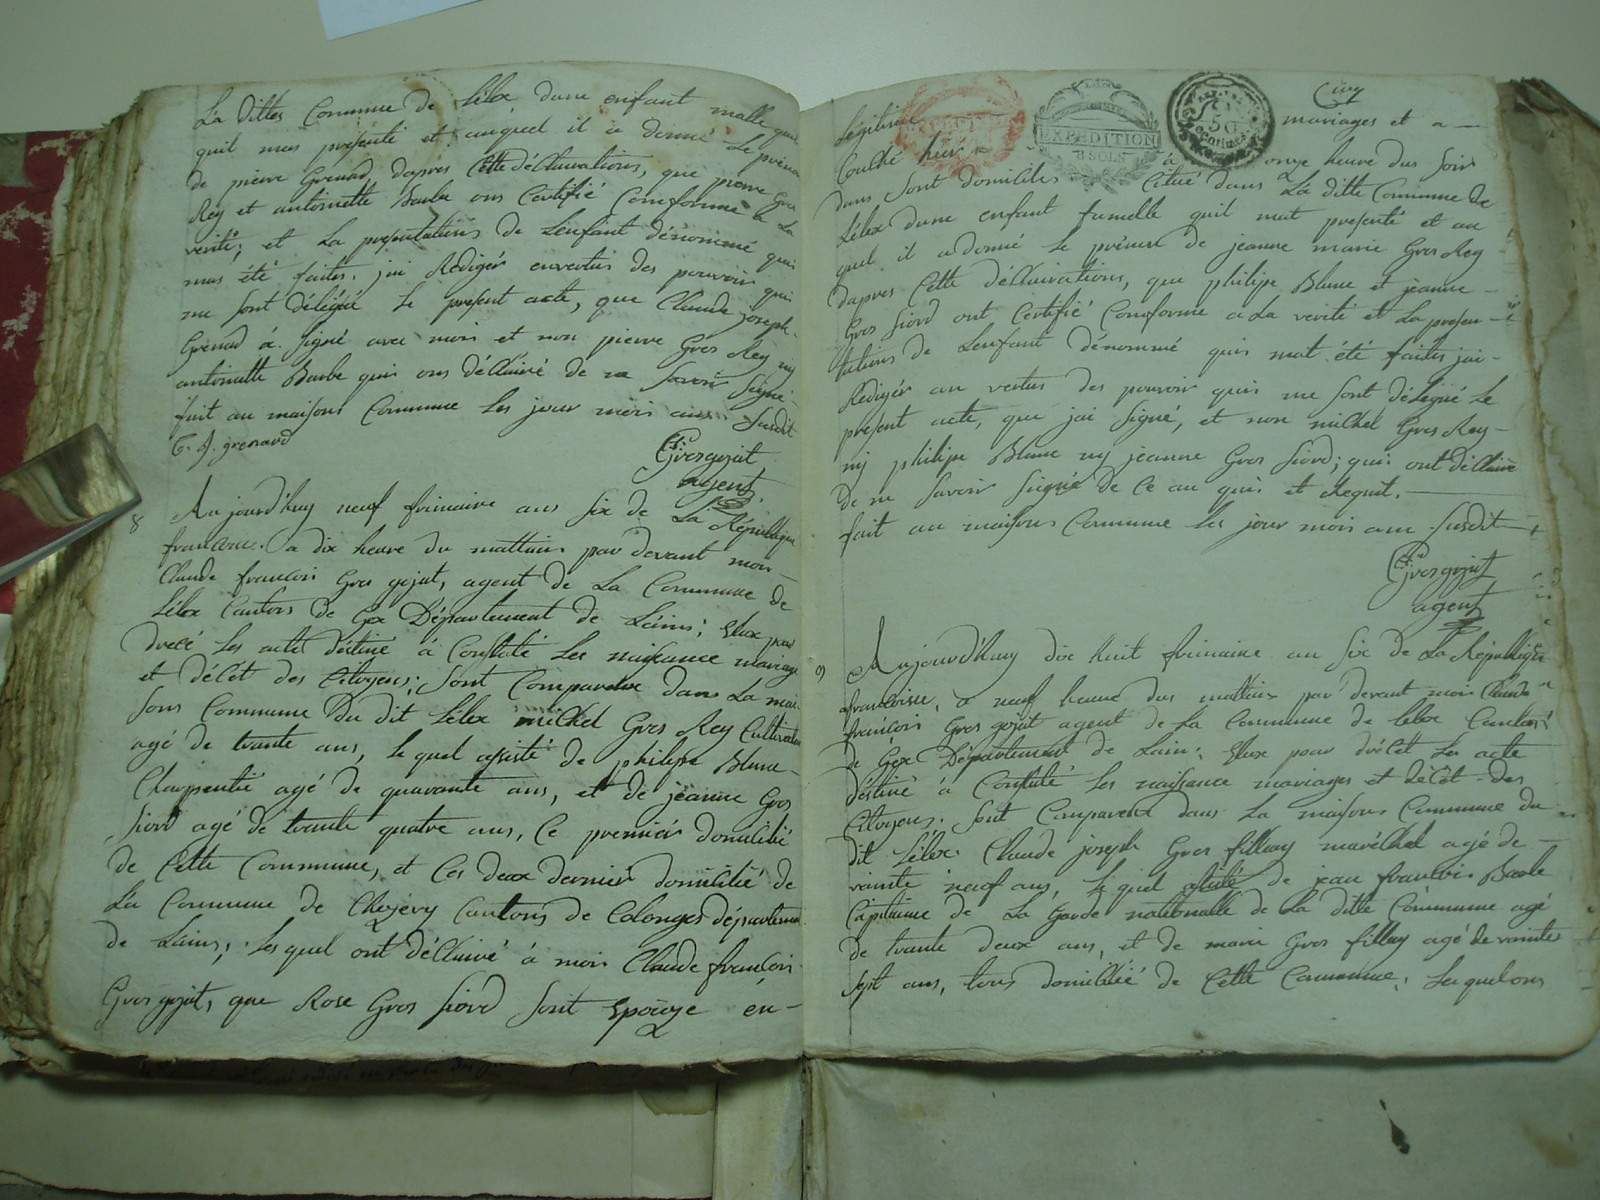 La dittes Commune de Lélex dune enfant malle quis
quil mas présenté et auquel il a donné Le prénom
de pierre Grenad, dapres Cette déclluirations, que pierre Gros
Rey et antoinette Barbe ons Certifié Comforme a La
verité; et La présentations de Lenfant dénommé quis
mas été faites. jai Rédigér envertus des pouvoirs quis
me sont délégué Le présent acte, que Claude joseph
Grenad à signé avec mois et non pierre Gros Rey ny
antoinette Barbe quis ons dèlluiré de ne savoir signé
fait au maisons Commune Les jour mois ans Susdit
C. J. grenard
Grosgojat
agent
8 Aujourd'huy neuf frimaire ans six de La République
francoise. a dix heure du mattain par devant mois
Claude françois Gros gojat, agent de La Commune de
Lélex Cantons de Gex Département de Lains; Elux pour
drecé Les acte déstiné à Constaté Les naissance mariage
et décèt des Citoyens; sont Comparelux dans La mai-
sons Commune Du dit Lélex michel Gros Rey Cultivateur
agé de trante ans, Le quel assisté de philipe Blunc
Charpentié agé de quarante ans, et de jeanne Gros
siord agé de trante quatre ans, Ce premiér domicilié
de Cette Commune, et Ces deux dernier domicilié de
La Commune de Chezery Cantons de Colonges département
de Lains; Les quel ont délluiré à mois Claude françois
Gros gojat, que Rose Gros siord sont Epouze en-
Civy
Légitime mariages et a
Couché hier a onze heure dus soir
dans sont domiciles Citué dans La ditte Commune de
Lélex dune enfant fumelle quil mat présenté et au
quel il adonné Le prénom de jeanne marie Gros Rey
dapres Cette délluirations, que philipe Blunc et jeanne
Gros siord ont Certifié Comforme a La verité et La presen-
tations de Lenfant dénommé quis mat été faites jai
Rédigér au vertus des pouvoir quis me sont délégué Le
présent acte, que jai signé, et non michel Gros Rey
ny philipe Blunc ny jeanne Gros siord; quis ont délluiré
de ne savoir signé de Ce au quis et Requit.
fait au maisons Commune Les jour mois ans Susdit
Grosgojat
agent
9 Aujourd'huy dix huit frimaire an six de La République
francoise, a neuf heure dus mattain par devant mois Claude
françois Gros gojat agent de La Commune de Lélex Cantons
de Gex Département de Lain; Elux pour drécét Les acte
déstiné à Constaté Les naissance mariages et décét des
Citoyens. sont Comparelux dans La maisons Commune du
dit Lélex. Claude joseph Gros filluay maréchal agé de
vainte neuf ans, Le quel assisté de jean francois Barbe
Capitaine de La Garde nationalle de La ditte Commune agé
de trante deux ans, et de marie Gros filluy agé de vainte
sept ans, tous domicilié de Cette Commune; Les quel ons
EXPEDITION
8 SOLS
50